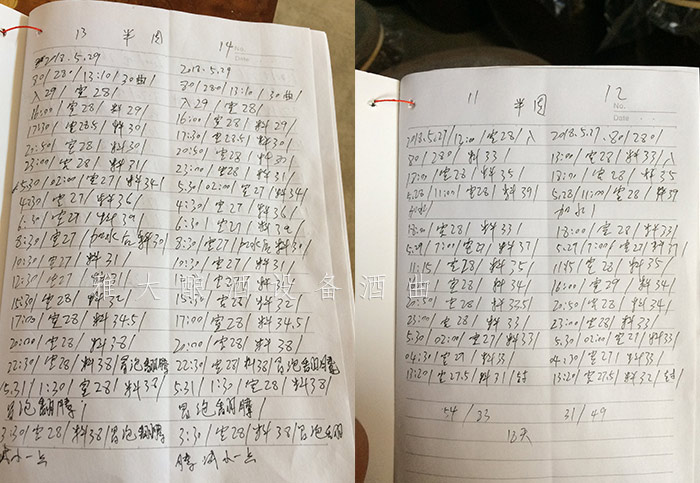 13 半固 14
No.
Date
2018.5.29
30/28/13:10/30曲/
入29/室28/
16:00/室28/料29/
17:30/室28.5/料30/
20:50/室28/料30/
23:00/室28/料31/
5.30/02:00/室27/料34/
4:30/室27/料36/
6:30/室27/料39/
8:30/室27/加水后料30/
10:30/室27/料31/
12:30/室27/料31/
15:30/室28/料32/
17:00/室28/料34.5/
20:00/室28/料38/
22:30/室28/料38/冒泡翻腾
5.31/1:30/室28/料38/
冒泡翻腾/
3:30/室28/料38/冒泡翻腾
减小一点
2018.5.29
30/280/13:10/30曲/
入29/室28/
16:00/室28/料29/
17:30/室28.5/料30/
20:50/室28/料30/
23:00/室28/料31/
5.30/02:00/室27/料34/
4:30/室27/料36/
6:30/室27/料39/
8:30/室27/加水后料30/
10:30/室27/料31/
室27/料31/
15:30/室28/料32/
17:00/室28/料34.5/
20:00/室28/料38/
22:30/室28/料38/冒泡翻腾
5.31/1:30/室28/料38/
冒泡翻腾/
3:30/室28/料38/冒泡翻
腾减小一点
11 半固 12
No.
Date
2018.5.27/12:00/室28/入
30/280/料33/
18:00/室28/料35/
5.28/11:00/室28/料39/
加水/
18:00/室28/料33/
5.29/7:00/室27/料37/
11:15/室28/料35/
料34/
20:50/室28/料33.5/
23:00/室28/料33/
5.30/02:00/室27/料33/
04:30/室27/料33/
13:20/室27.5/料31/封
54/33
2018.5.27.30/280/
13:00/室28/料33/入
18:00/室28/料35/
5.28/11:00/室28/料39
加水/
18:00/室28/料33/
5.29/7:00/室27/料37/
11:15/室28/料35/
16:00/室29/料34/
20:50/室28/料34/
23:00/室28/料33/
5.30/02:00/室27/料33/
04:30/室27/料33/
13:20/室27.5/料32/封
31/49
12天
雅大酿酒设备酒曲